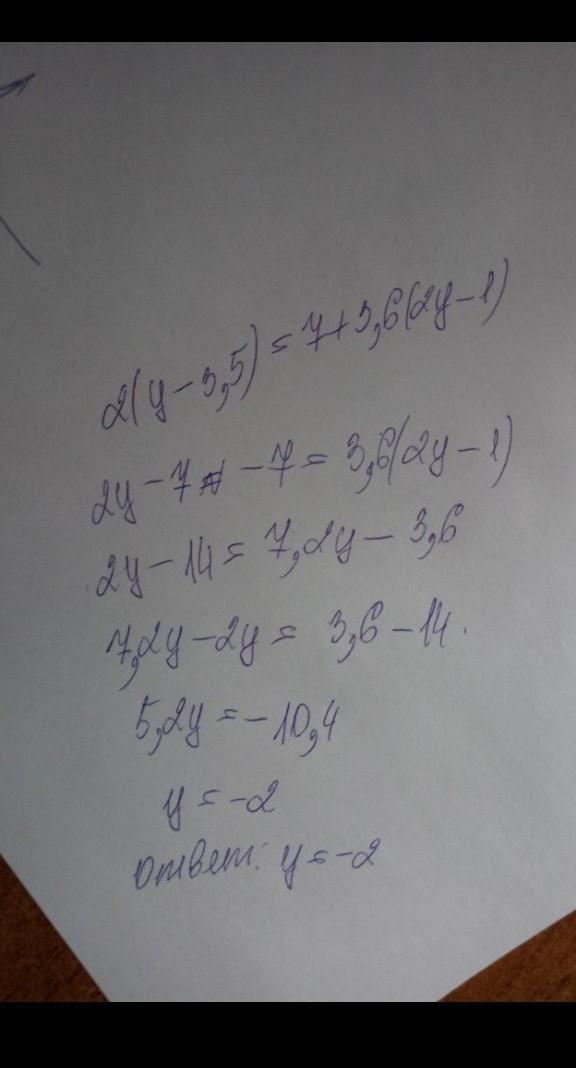 2(y-3,5)=7+3,6(2y-1)
2y-7-7=3,6(2y-1)
2y-14=7,2y-3,6
7,2y-2y=3,6-14.
5,2y=-10,4
y=-2
ответ: y=-2